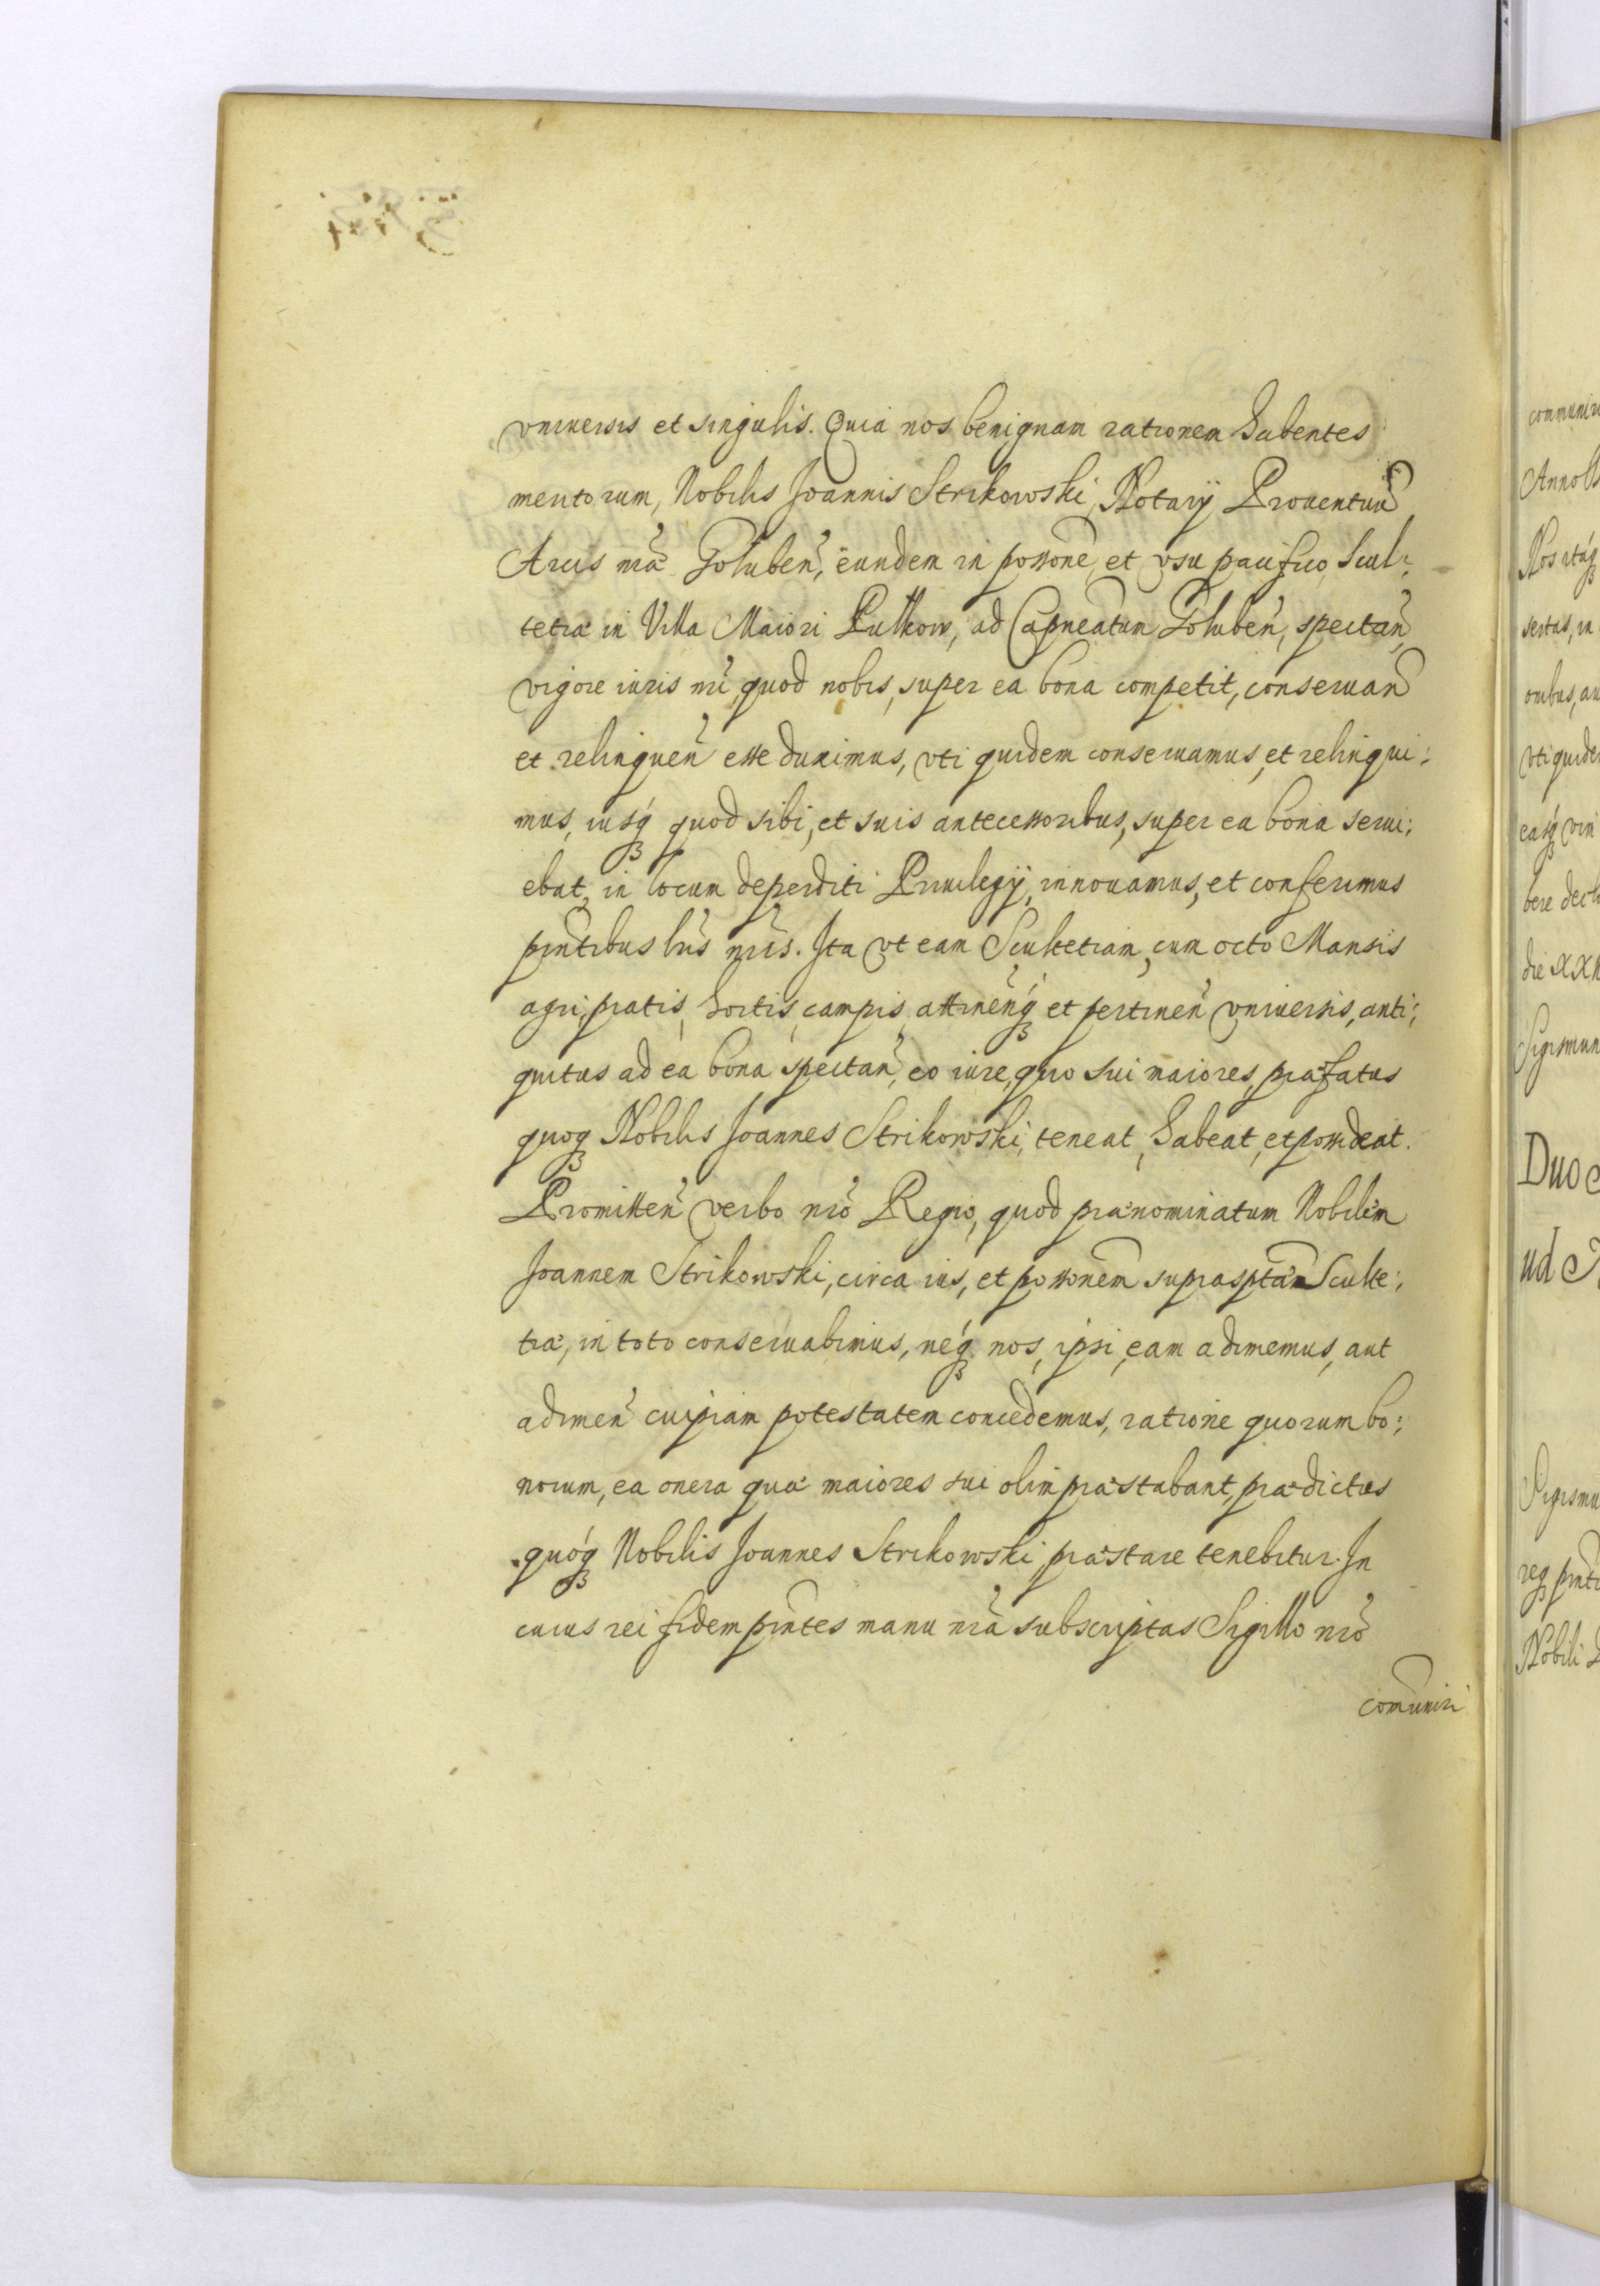 vniuersis et singulis. Quia nos benignam rationem habentes
meritorum, Nobilis Joannis Strikowski, Notarij Prouentuũ
Arcis nrã Goluben̄, eundem in possone, et vsu pacifico Scul:
tetiæ in Villa Maiori Pulkow, ad Capneatum Goluben̄, spectan̄,
vigore iuris nri, quod nobis, super ea bona competit, conseruan̄
et relinquen̄ esse duximus, vti quidem conseruamus, et relinqui:
mus, iusq́ꝫ quod sibi, et suis antecessoribus, super ea bona serui:
ebat, in locum deperditi Priuilegij, innouamus, et conferimus
pñtibus lris nris. Ita vt eam Scultetiam, cum octo Mansis
agri, pratis, hortis, campis, attinen̄q́ꝫ et pertinen̄ vniuersis, anti:
quitus ad ea bona spectan̄, eo iure, quo sui maiores, præfatus
quoqꝫ Nobilis Joannes Strikowski, teneat, habeat, et possideat.
Promitten̄ verbo nro Regio, quod prænominatum Nobilem
Joannem Strikowski, circa ius, et possonem suprasptãm Sculte:
tiæ, in toto conseruabimus, neq́ꝫ nos, ipsi, eam adimemus, aut
adimen̄ cuipiam potestatem concedemus, ratione quorum bo:
norum, ea onera quæ maiores sui olim præstabant, prædictus
quóqꝫ Nobilis Joannes Strikowski præstare tenebitur. In
cuius rei fidem pñtes manu nra subscriptas Sigillo nro
com̃uniri
communiri
Nos itáqꝫ
vti quide
Sigismun
Duo
ud
Sigismu
Nobili